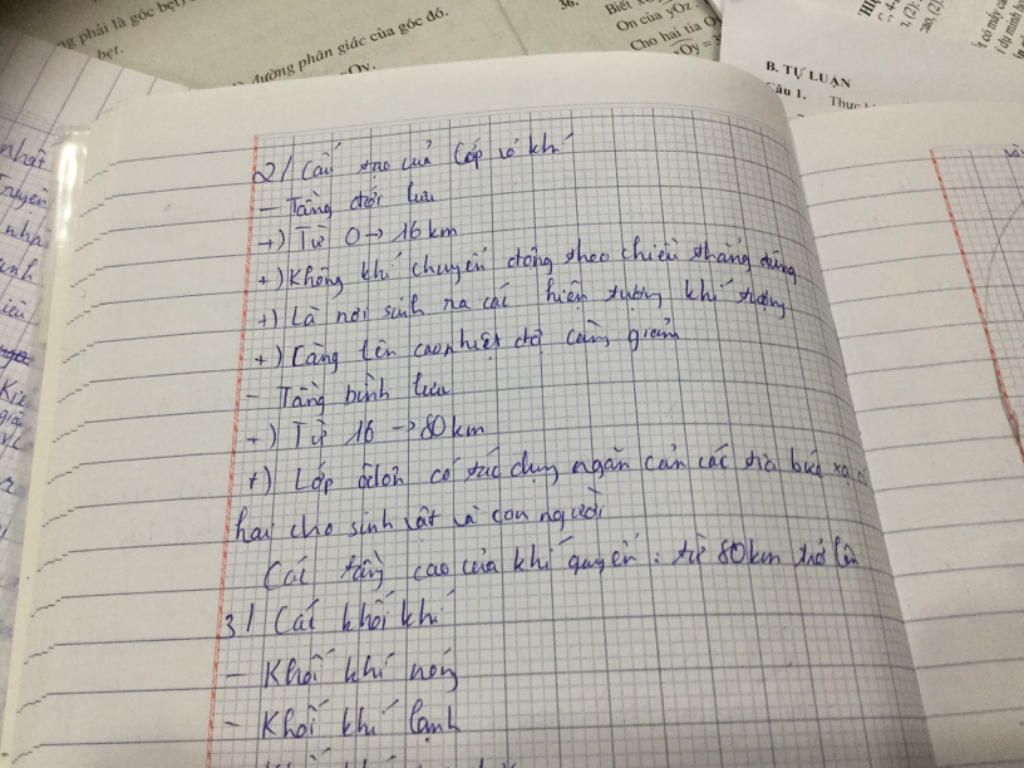 ng phải là góc bẹt)
bẹt.
đường phân giác của góc đó.
36.
Biết
On của yOz.
Cho hai tia O
B. TỰ LUẬN
Câu 1. Thực
nhất
truyện
2/ Cấu tạo của lớp vỏ khí
- Tầng đối lưu
+) Từ 0 → 16 km
+) Không khí chuyển động theo chiều thẳng đứng
+) Là nơi sinh ra các hiện tượng khí tượng
+) Càng lên cao nhiệt độ càng giảm
- Tầng bình lưu
+) Từ 16 → 80 km
+) Lớp ôdôn có tác dụng ngăn cản các tia bức xạ có
hại cho sinh vật và con người
Các tầng cao của khí quyển : từ 80km trở lên
3/ Các khối khí
- Khối khí nóng
- Khối khí lạnh